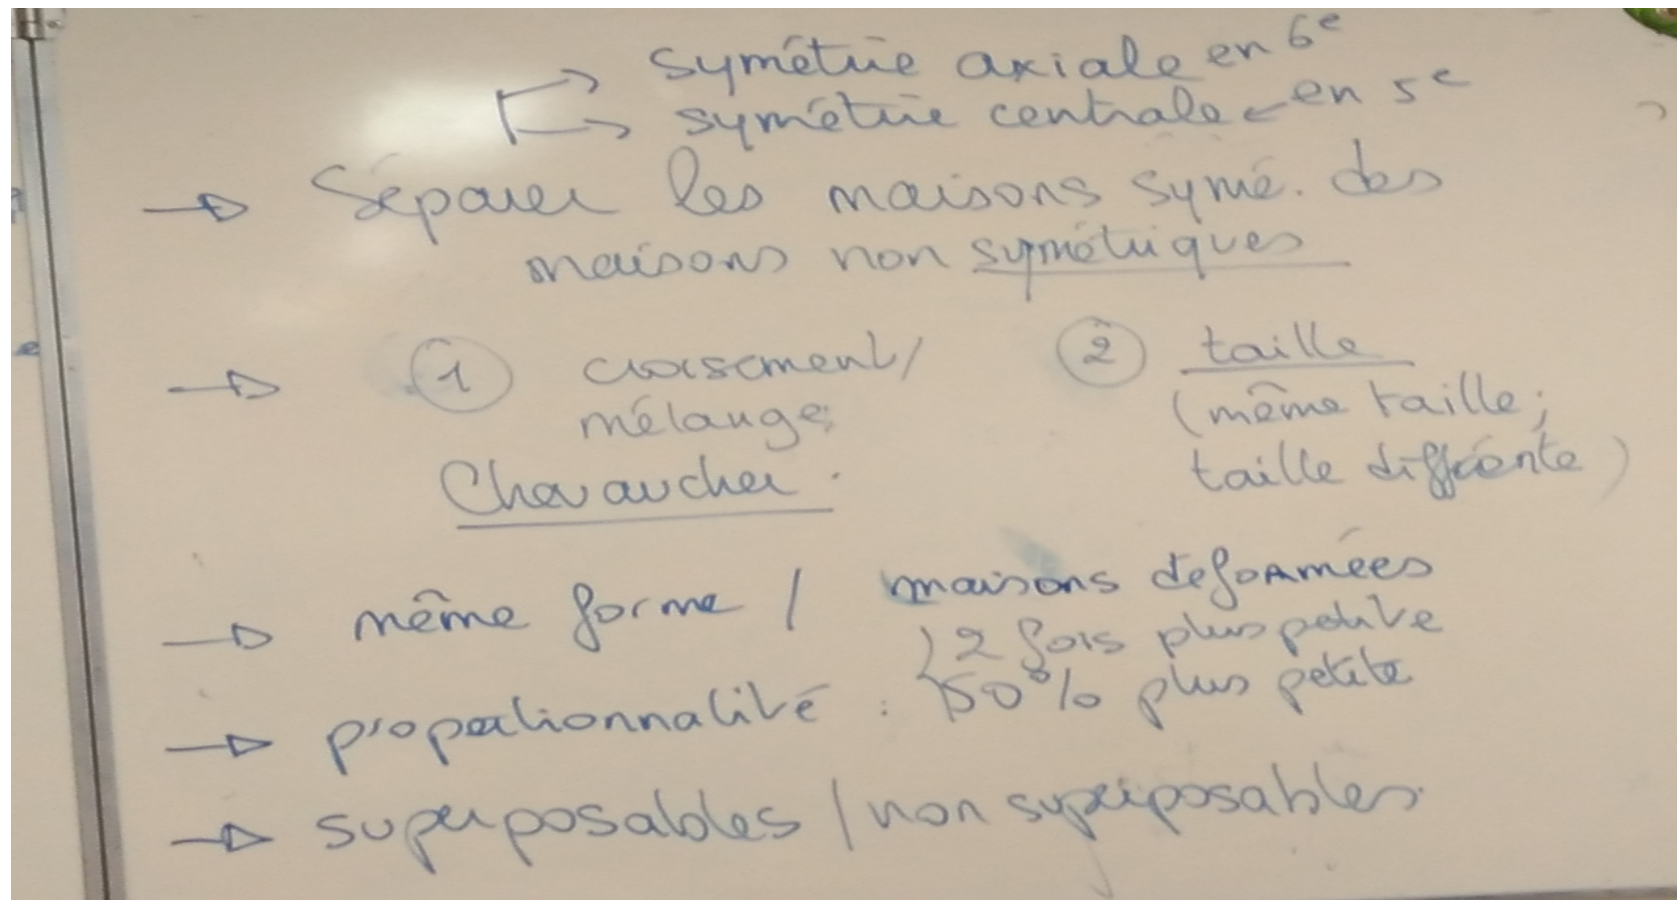 symétrie axiale en 6e
symétrie centrale ← en 5e
→ Séparer les maisons symé. des
maisons non symétriques
→ 1 croisement/
mélange;
Chevaucher.
2 taille
(même taille;
taille différente)
→ même forme / maisons déformées
→ proportionnalité : { 2 fois plus petite
50% plus petite
→ superposables / non superposables.